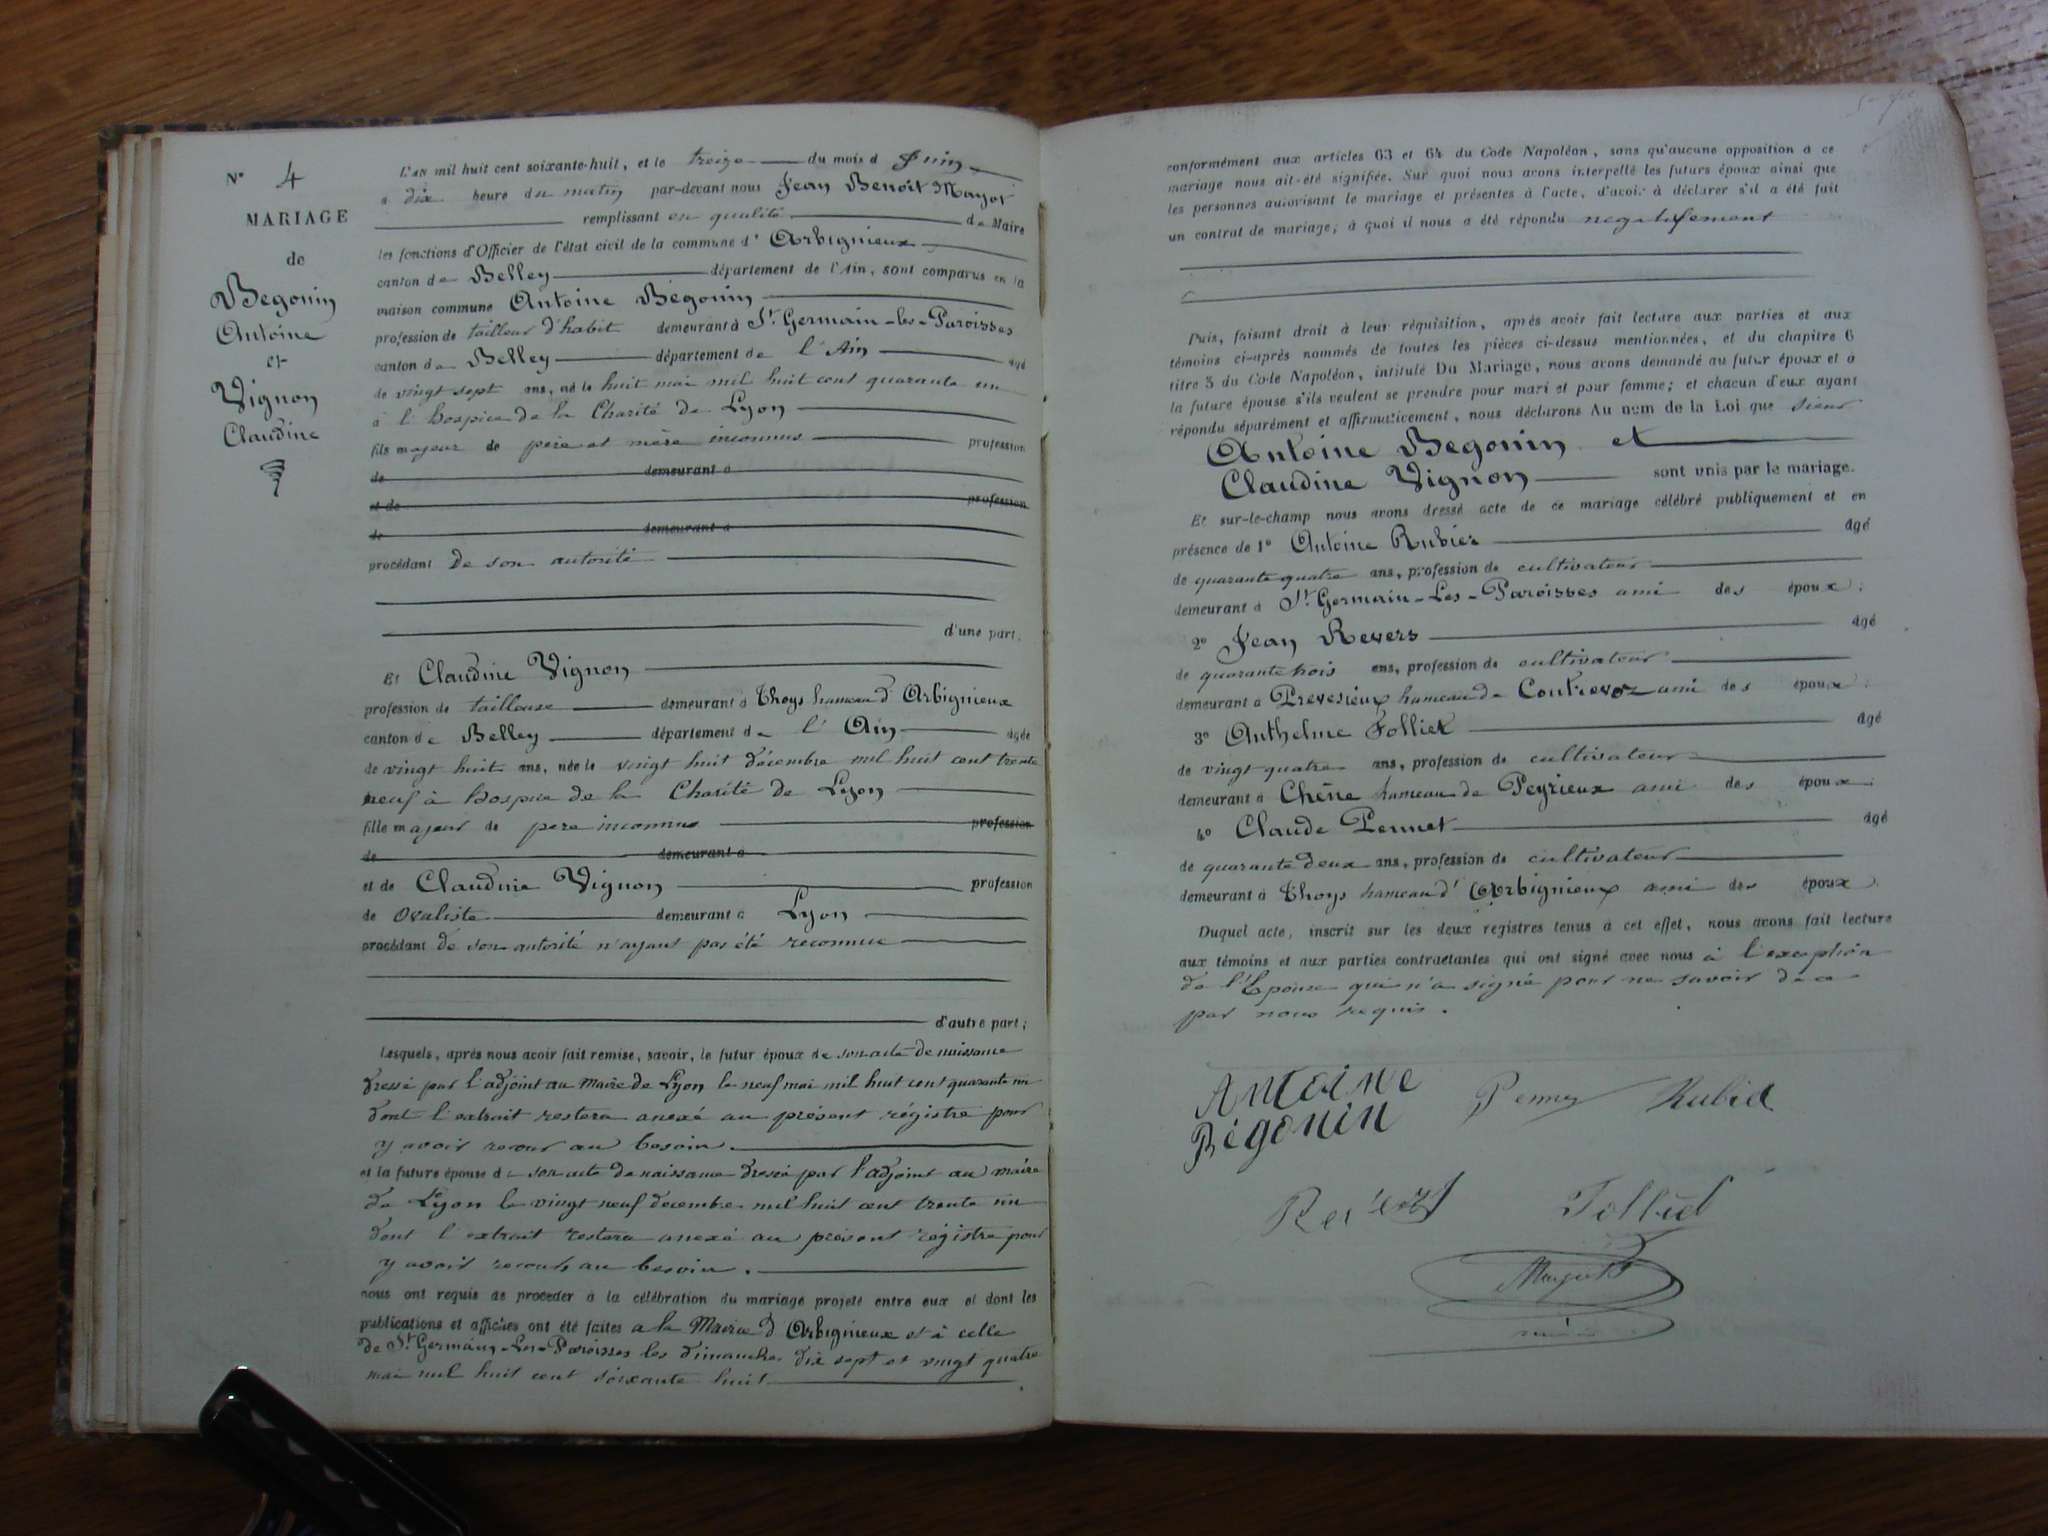 N° 4
MARIAGE
de
Begonin
Antoine
et
Vignon
Claudine
L'AN mil huit cent soixante-huit, et le treize du mois d Juin
à dix heure du matin par-devant nous Jean Benoit Mayot
remplissant en qualité de Maire
les fonctions d'Officier de l'état civil de la commune d' Arbignieux
canton de Belley département de l'Ain, sont comparus en la
maison commune Antoine Bégonin
profession de tailleur d'habit demeurant à St Germain-les-Paroisses
canton de Belley département de l'Ain âgé
de vingt sept ans, né le huit mai mil huit cent quarante un
à l'hospice de la Charité de Lyon
fils majeur de père et mère inconnus profession
de demeurant à
et de profession
de demeurant à
procédant de son autorité
d'une part.
Et Claudine Vignon
profession de tailleuse demeurant à Thoys hameau d'Arbignieux
canton de Belley département de l'Ain âgée
de vingt huit ans, née le vingt huit décembre mil huit cent trente
neuf à hospice de la Charité de Lyon
fille majeur de père inconnus profession
de demeurant à
et de Claudine Vignon profession
de Ovaliste demeurant à Lyon
procédant de son autorité n'ayant pas été reconnue
d'autre part;
Lesquels, après nous avoir fait remise, savoir, le futur époux de son acte de naissance
dressé par l'adjoint au Maire de Lyon le neuf mai mil huit cent quarante un
dont l'extrait restera anexé au présent régistre pour
y avoir recour au besoin.
et la future épouse de son acte de naissance dressé par l'adjoint au maire
de Lyon le vingt neuf decembre mil huit cent trente un
dont l'extrait restera anexé au présent régistre pour
y avoir recours au besoin.
nous ont requis de procéder à la célébration du mariage projeté entre eux et dont les
publications et affiches ont été faites a la Mairie d'Arbignieux et à celle
de St Germain-Les-Paroisses les dimanches dix sept et vingt quatre
mai mil huit cent soixante huit
conformément aux articles 63 et 64 du Code Napoléon, sans qu'aucune opposition à ce
mariage nous ait été signifiée. Sur quoi nous avons interpellé les futurs époux ainsi que
les personnes autorisant le mariage et présentes à l'acte, d'avoir à déclarer s'il a été fait
un contrat de mariage; à quoi il nous a été répondu negativement
Puis, faisant droit à leur réquisition, après avoir fait lecture aux parties et aux
témoins ci-après nommés de toutes les pièces ci-dessus mentionnées, et du chapitre 6
titre 5 du Code Napoléon, intitulé Du Mariage, nous avons demandé au futur époux et à
la future épouse s'ils veulent se prendre pour mari et pour femme; et chacun d'eux ayant
répondu séparément et affirmativement, nous déclarons Au nom de la Loi que sieur
Antoine Begonin et
Claudine Vignon sont unis par le mariage.
Et sur-le-champ nous avons dressé acte de ce mariage célébré publiquement et en
présence de 1° Antoine Rubier âgé
de quarante quatre ans, profession de cultivateur
demeurant à St Germain-Les-Paroisses ami des époux;
2° Jean Revers âgé
de quarante trois ans, profession de cultivateur
demeurant à Prevesieux hameau de Contrevoz ami des époux;
3° Anthelme Folliet âgé
de vingt quatre ans, profession de cultivateur
demeurant à Chêne hameau de Peyrieux ami des époux;
4° Claude Pennet âgé
de quarante deux ans, profession de cultivateur
demeurant à Thoys hameau d'Arbignieux ami des époux.
Duquel acte, inscrit sur les deux registres tenus à cet effet, nous avons fait lecture
aux témoins et aux parties contractantes qui ont signé avec nous à l'exception
de l'Epouse qui n'a signé pour ne savoir de ce
par nous requis.
Antoine
Bégonin
Rubie
Folliet